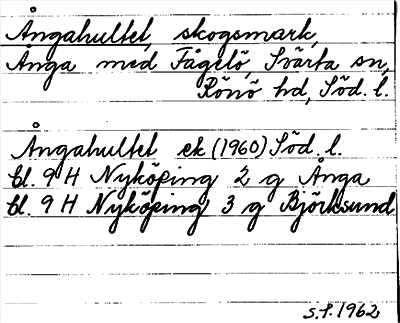 Ångahultet, skogsmark,
Ånga med Fågelö, Svärta sn,
Rönö hd, Söd. l.
Ångahultet ek (1960) Söd. l.
bl. 9 H Nyköping 2 g Ånga
bl. 9 H Nyköping 3 g Björksund
S.f. 1962